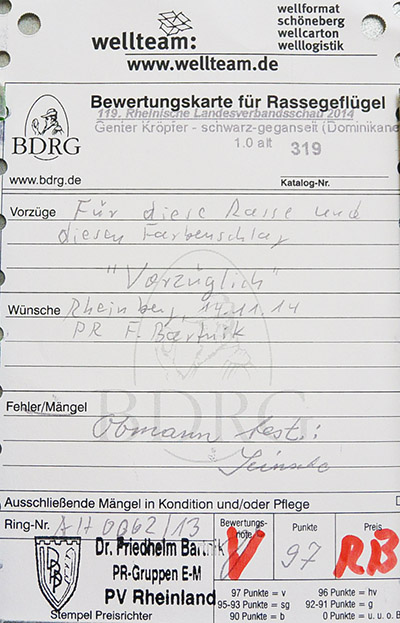 wellformat
schöneberg
wellteam:
wellcarton
welllogistik
www.wellteam.de
Bewertungskarte für Rassegeflügel
119. Rheinische Landesverbandsschau 2014
Genter Kröpfer - schwarz-geganselt (Dominikane
1.0 alt 319
BDRG
www.bdrg.de
Katalog-Nr.
Vorzüge Für diese Rasse und
diesen Farbenschlag
"Vorzüglich"
Wünsche Rheinberg, 14.11.14
PR F. Bartnik
BDRG
Fehler/Mängel
Obmann best.:
Ausschließende Mängel in Kondition und/oder Pflege
Ring-Nr. AH 0062/13
Bewertungs-
note
Punkte
Preis
V
97
RB
Dr. Friedhelm Bartnik
PR-Gruppen E-M
PV Rheinland
Stempel Preisrichter
97 Punkte = v 96 Punkte = hv
95-93 Punkte = sg 92-91 Punkte = g
90 Punkte = b 0 Punkte = u. u. o. B